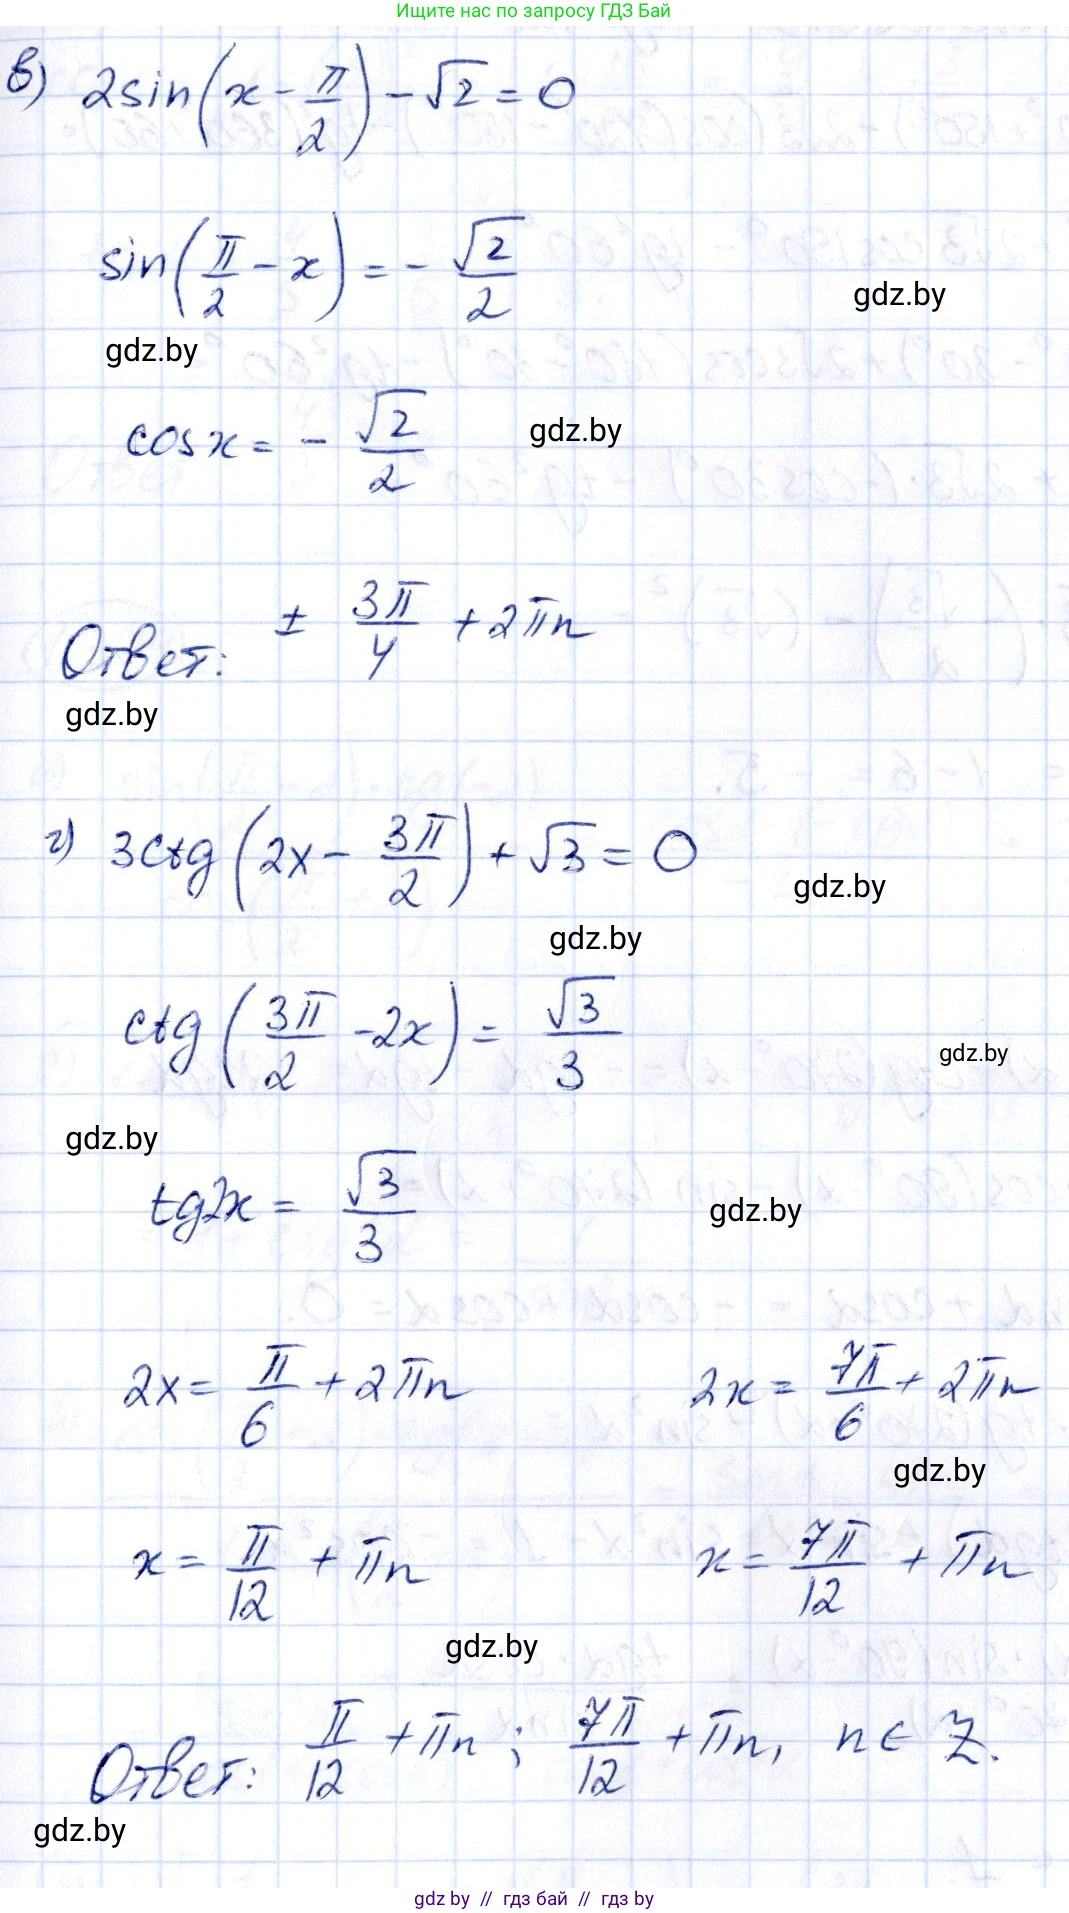 Ищите нас по запросу ГДЗ Бай
в) 2sin(x - π/2) - √2 = 0
sin(π/2 - x) = - √2/2
gdz.by
gdz.by
cosx = - √2/2
gdz.by
Ответ: ± 3π/4 + 2πn
gdz.by
г) 3ctg(2x - 3π/2) + √3 = 0
gdz.by
gdz.by
ctg(3π/2 - 2x) = √3/3
gdz.by
gdz.by
tg2x = √3/3
gdz.by
2x = π/6 + 2πn 2x = 7π/6 + 2πn
gdz.by
x = π/12 + πn x = 7π/12 + πn
gdz.by
Ответ: π/12 + πn ; 7π/12 + πn, n ∈ Z.
gdz.by
gdz by // гдз бай // гдз by